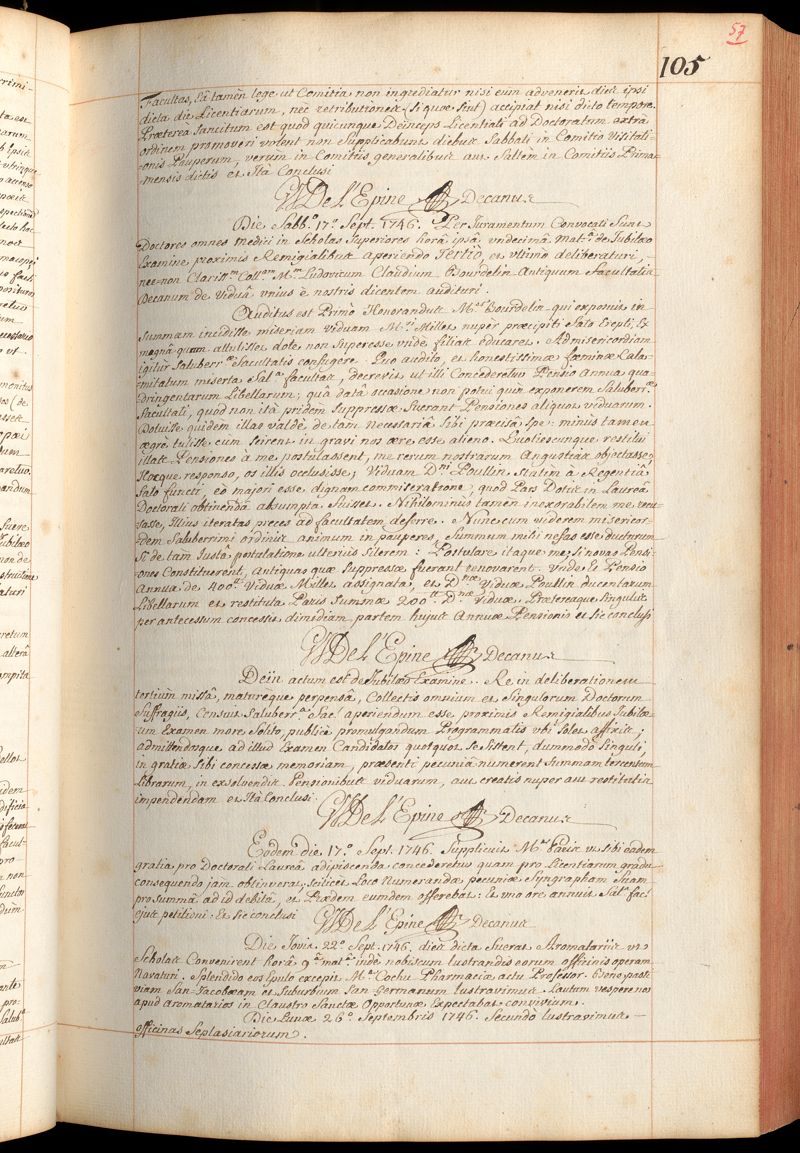 57
105
Facultas, Eâ tamèn lege ut Comitia non ingrediatur nisi cum advenerit dies ipsi
dicta diu Licentiarum, nec retributiones (si quæ sint) accipiat nisi dicto tempore.
Prætereà Sancitum est quod quicunque Deinceps Licentiati ad Doctoratum extrà
ordinem promoveri volent non Supplicabunt diebus Sabbati in Comitia Visitati-
onis Pauperum, verùm in Comitiis generalibus aut Saltem in Comitiis Prima-
mensis dictis et Ità Conclusi
GJ De L'Epine Decanus
Die Sabb.º 17.º Sept. 1746. Per Juramentum Convocati Sunt
Doctores omnes Medici in Scholas Superiores horâ ipsâ undecimâ Mat.ª de Jubilæo
Examine proximis Remigialibus aperiendo Tertiò, et ultimò deliberaturi,
nec-non Clariss.um Coll.am M.um Ludovicum Claudium Bourdelin Antiquum Facultatis
Decanum de Viduâ unius è nostris dicentem audituri.
Auditus est Primò Honorandus M.er Bourdelin qui exposuit in
Summam incidisse miseriam viduam M.ri Millet nuper præcipiti Fato Erepti, Ex
magnâ quam attulisset dote non Superesse unde filias educaret. Ad misericordiam
igitur Saluberr.æ Facultatis confugere. Quo audito, et honestissimæ fæminæ Cala-
mitatum miserta Sal.ª facultas, decrevit ut illi Concederetur Pensio Annua qua-
dringentarum Libellarum; quâ datâ occasione non potui quin exponerem Saluberr.æ
Facultati, quod non ità pridem Suppressæ fuerant Pensiones aliquot viduarum.
Doluisse quidem illas valdè de tam necessariâ Sibi præcisâ Spe: minùs tamen
ægrè tulisse cum Scirent in gravi nos ære esse alieno. Quotiescunque restitui
illas Pensiones à me postulassent, me rerum nostrarum Angustias objectasse,
Hocque responso, os illis occlusisse; Viduam D.ni Poullin, Statim à Regentiâ
Fato functi, eò majori esse dignam commiseratione, quod Pars Dotis in Laureâ
Doctorali obtinendâ absumpta fuisset. Nihilominùs tamen inexorabilem me recu-
sasse, illius iteratas preces ad facultatem deferre. Nunc cum viderem misericor-
dem Saluberrimi ordinis animum in pauperes, Summum mihi nefas esse ducturum
Si de tam Justâ postulatione ulteriùs Silerem: Postulare itaque me; Si novas Pensi-
ones Constituerent, Antiquas quæ Suppressæ fuerant renovarent. Unde et Pensio
Annua de 400.tt Viduæ Millet assignata, et D.næ Viduæ Poullin ducentarum
Libellarum et restituta Paris Summæ 200.tt D.næ Viduæ. Prætereaque Singulis
per antecessum concessa dimidiam partem hujus Annuæ Pensionis et Sic conclusi
GJ De L'Epine Decanus
Deïn actum est de Jubilæo Examine. Re in deliberationem
tertiùm missâ, matureque perpensâ, Collectis omnium et Singulorum Doctorum
Suffragiis, Censuit Saluberr.ª Fac.s aperiendum esse proximis Remigialibus Jubilæ-
um Examen more Solito, publicè promulgandum Programmatis ubi Solet affixis;
admittendosque ad illud Examen Candidatos quotquot Se Sistent, dummodò Singuli,
in gratiæ Sibi concessæ memoriam, præsenti pecuniâ numerent Summam tercentum
Librarum, in exsolvendis Pensionibus viduarum, aut creatis nuper aut restitutis
impendendam et Ità Conclusi.
GJ De L'Epine Decanus
Eodem die 17.º Sept. 1746. Supplicuit M.er ut Sibi eadem
gratia pro Doctorali Laureâ adipiscenda concederetur quam pro Licentiarum gradu
consequendo jam obtinuerat; scilicet Loco Numerandæ pecuniæ Syngrapham Suam
pro Summâ ad id debitâ, et Prædem eumdem offerebat: Et uno ore annuit Sal.s fac.s
ejus petitioni: Et Sic conclusi GJ De L'Epine Decanus
Die Jovis 22.º Sept. 1746. dies dicta fuerat Aromatariis ut
Scholas Convenirent horâ 9.ª mat.ª indè nobiscum lustrandis eorum officinis operam
Navaturi. Splendido eos Epulo excepit M.er Cochu Pharmaciæ actu Professor. Bonò posteà
viam San-Jacobæam et Suburbium San-Germanum lustravimus. Lautum vespere nos
apud Aromatarios in Claustro Sanctæ Opportunæ Expectabat convivium.
Die Lunæ 26.º Septembris 1746. Secundò lustravimus
officinas Seplasiariorum.